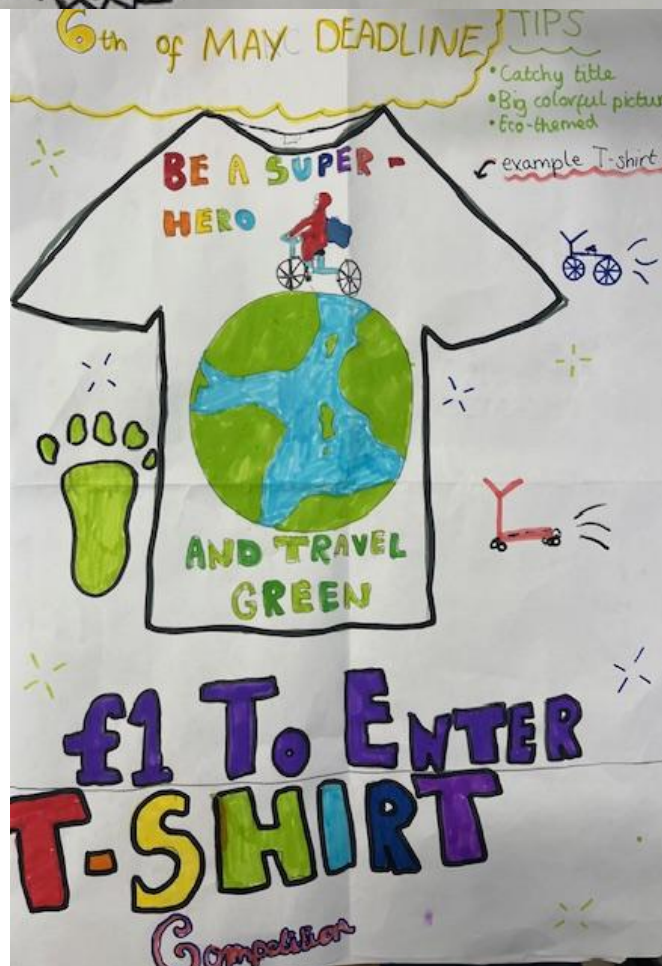 6th of MAY DEADLINE
TIPS
• Catchy title
• Big colorful pictur
• Eco-themed
example T-shirt
BE A SUPER-
HERO
AND TRAVEL
GREEN
£1 To ENTER
T-SHIRT
Competition